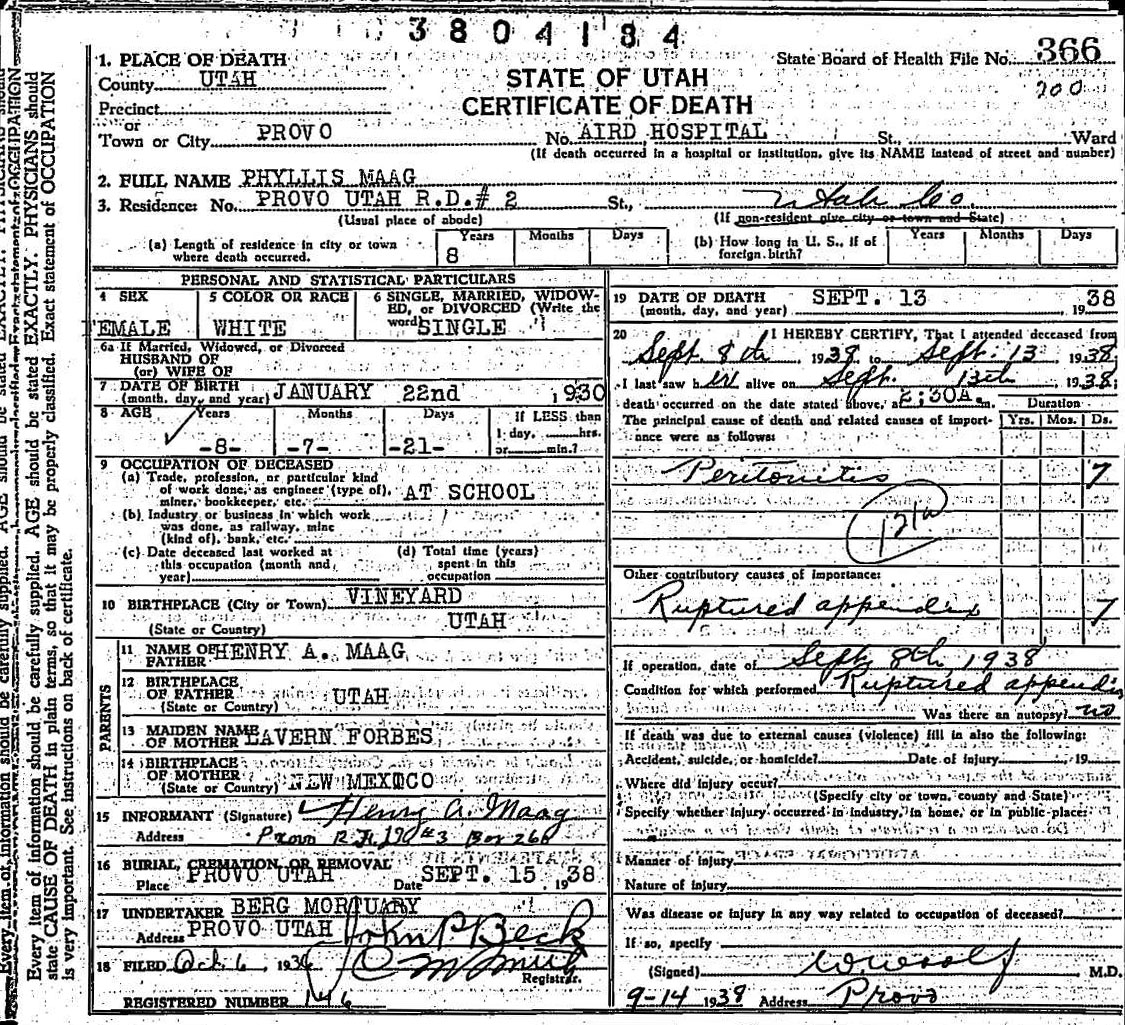 3804184
1. PLACE OF DEATH
County UTAH
Precinct
or
Town or City PROVO
STATE OF UTAH
CERTIFICATE OF DEATH
State Board of Health File No. 366
200
No. AIRD HOSPITAL St., Ward
(If death occurred in a hospital or institution, give its NAME instead of street and number)
2. FULL NAME PHYLLIS MAAG
3. Residence: No. PROVO UTAH R.D.# 2 St., Utah Co
(Usual place of abode) (If non-resident give city or town and State)
(a) Length of residence in city or town where death occurred. Years 8 Months Days
(b) How long in U. S., if of foreign birth? Years Months Days
PERSONAL AND STATISTICAL PARTICULARS
4 SEX FEMALE
5 COLOR OR RACE WHITE
6 SINGLE, MARRIED, WIDOW-
ED, or DIVORCED (Write the
word) SINGLE
6a If Married, Widowed, or Divorced
HUSBAND OF
(or) WIFE OF
7 DATE OF BIRTH
(month, day, and year) JANUARY 22nd , 1930
8 AGE Years Months Days If LESS than
-8- -7- -21- 1 day, hrs.
or min.?
9 OCCUPATION OF DECEASED
(a) Trade, profession, or particular kind
of work done, as engineer (type of),
miner, bookkeeper, etc. AT SCHOOL
(b) Industry or business in which work
was done, as railway, mine
(kind of), bank, etc.
(c) Date deceased last worked at
this occupation (month and
year)
(d) Total time (years)
spent in this
occupation
10 BIRTHPLACE (City or Town) VINEYARD
(State or Country) UTAH
PARENTS
11 NAME OF
FATHER HENRY A. MAAG
12 BIRTHPLACE
OF FATHER
(State or Country) UTAH
13 MAIDEN NAME
OF MOTHER LAVERN FORBES
14 BIRTHPLACE
OF MOTHER
(State or Country) NEW MEXICO
15 INFORMANT (Signature) Henry A. Maag
Address Provo R.F.D #3 Box 268
16 BURIAL, CREMATION, OR REMOVAL
Place PROVO UTAH Date SEPT. 15 1938
17 UNDERTAKER BERG MORTUARY
Address PROVO UTAH John P Beck
18 FILED Oct. 6, 193
Registrar.
REGISTERED NUMBER 146
19 DATE OF DEATH SEPT. 13
(month, day, and year) 1938
20 I HEREBY CERTIFY, That I attended deceased from
Sept. 8th, 1938 to Sept. 13 1938
I last saw her alive on Sept. 13th, 1938;
death occurred on the date stated above, at 2:30A. m.
The principal cause of death and related causes of import-
ance were as follows:
Duration
Yrs. Mos. Ds.
Peritonitis 7
121a
Other contributory causes of importance:
Ruptured appendix 7
If operation, date of Sept 8th 1938
Condition for which performed Ruptured appendix
Was there an autopsy? no
If death was due to external causes (violence) fill in also the following:
Accident, suicide, or homicide? Date of injury 19
Where did injury occur?
(Specify city or town, county and State)
Specify whether injury occurred in industry, in home, or in public place:
Manner of injury
Nature of injury
Was disease or injury in any way related to occupation of deceased?
If so, specify
(Signed) M.D.
9-14 1938 Address Provo
Every item of information should be carefully supplied. AGE should be stated EXACTLY. PHYSICIANS should
state CAUSE OF DEATH in plain terms, so that it may be properly classified. Exact statement of OCCUPATION
is very important. See instructions on back of certificate.